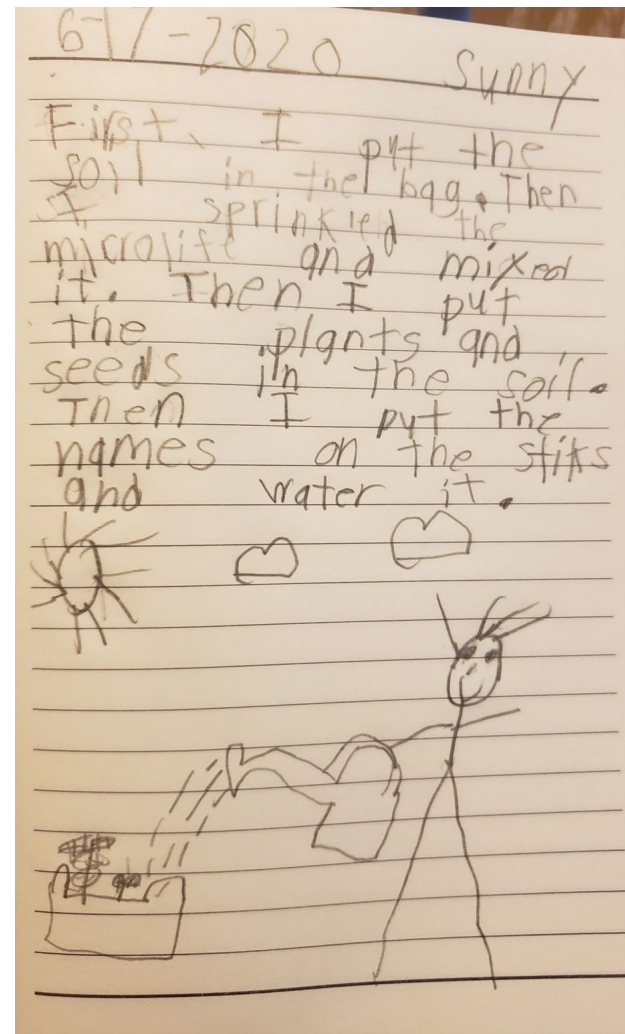 6-17-2020 Sunny
First, I put the
soil in the bag. Then
I sprinkled the
microlife and mixed
it. Then I put
the plants and
seeds in the soil.
Then I put the
names on the stiks
and water it.